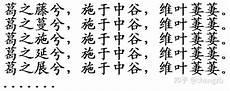 葛之藤兮，施于中谷，维叶萋萋。
葛之蔓兮，施于中谷，维叶萋萋。
葛之施兮，施于中谷，维叶萋萋。
葛之延兮，施于中谷，维叶萋萋。
葛之展兮，施于中谷，维叶萋萋。
.......
知乎